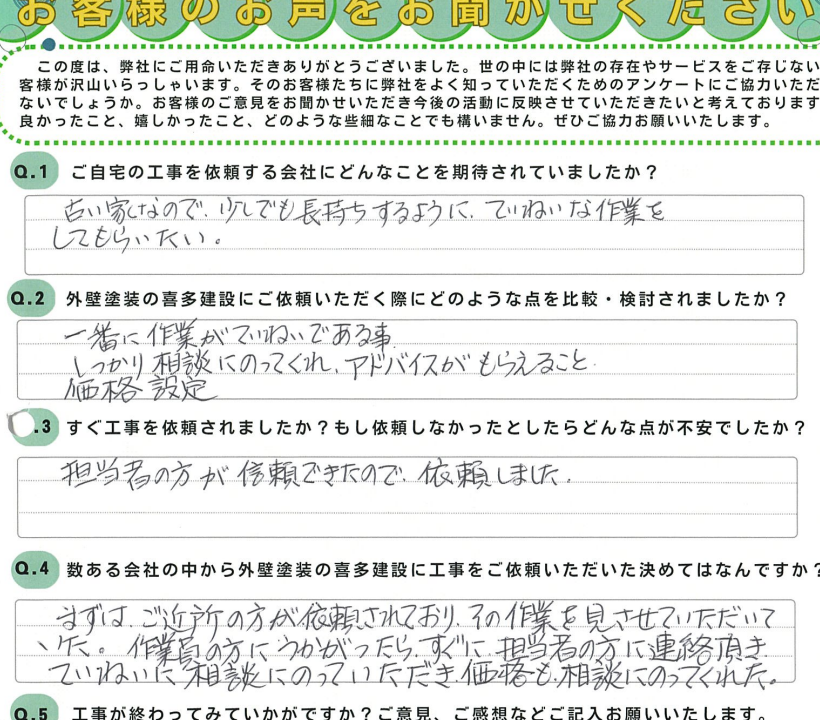 お客様のお声をお聞かせください
この度は、弊社にご用命いただきありがとうございました。世の中には弊社の存在やサービスをご存じない
客様が沢山いらっしゃいます。そのお客様たちに弊社をよく知っていただくためのアンケートにご協力いただ
ないでしょうか。お客様のご意見をお聞かせいただき今後の活動に反映させていただきたいと考えております
良かったこと、嬉しかったこと、どのような些細なことでも構いません。ぜひご協力お願いいたします。
Q.1 ご自宅の工事を依頼する会社にどんなことを期待されていましたか？
古い家なので、少しでも長持ちするように、ていねいな作業を
してもらいたい。
Q.2 外壁塗装の喜多建設にご依頼いただく際にどのような点を比較・検討されましたか？
一番に作業がていねいである事
しっかり相談にのってくれ、アドバイスがもらえること
価格設定
.3 すぐ工事を依頼されましたか？もし依頼しなかったとしたらどんな点が不安でしたか？
担当者の方が信頼できたので、依頼しました。
Q.4 数ある会社の中から外壁塗装の喜多建設に工事をご依頼いただいた決めてはなんですか？
まずは、ご近所の方が依頼されており、その作業を見させていただいて
いた。作業員の方にうかがったら、すぐに担当者の方に連絡頂き
ていねいに相談にのっていただき、価格も、相談にのってくれた。
Q.5 工事が終わってみていかがですか？ご意見、ご感想などご記入お願いいたします。